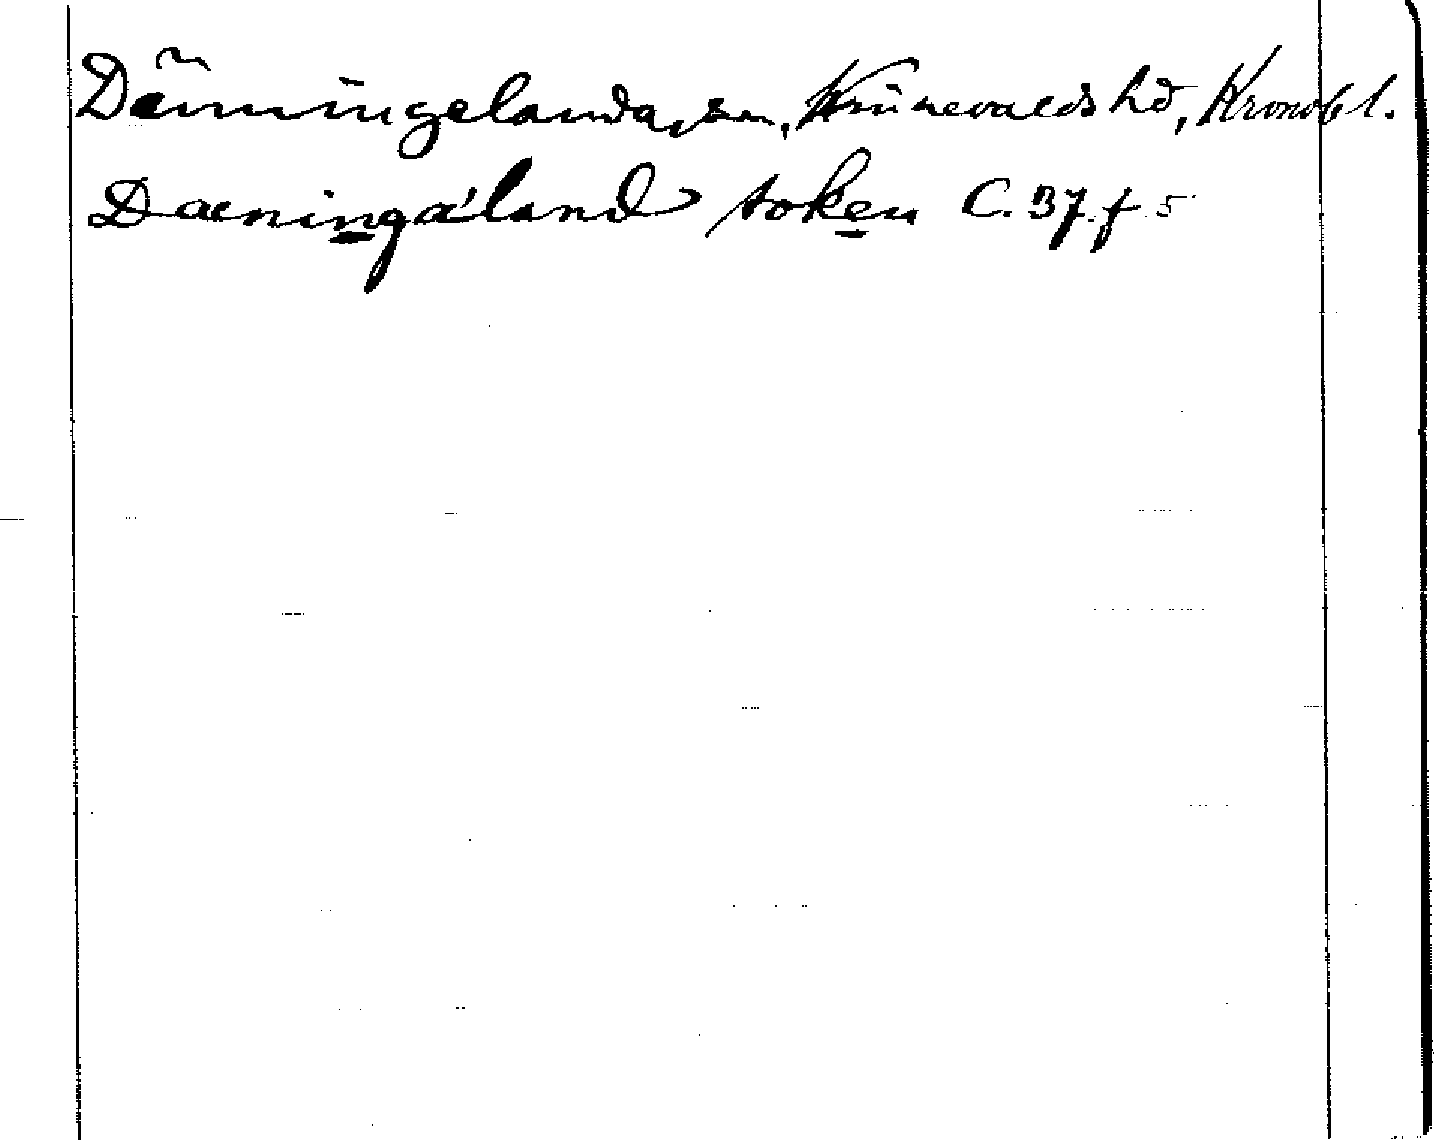 Dänningelanda, sn, Kinnevalds hd, Kronob l.
Dæningaland soken C. 37. f 5